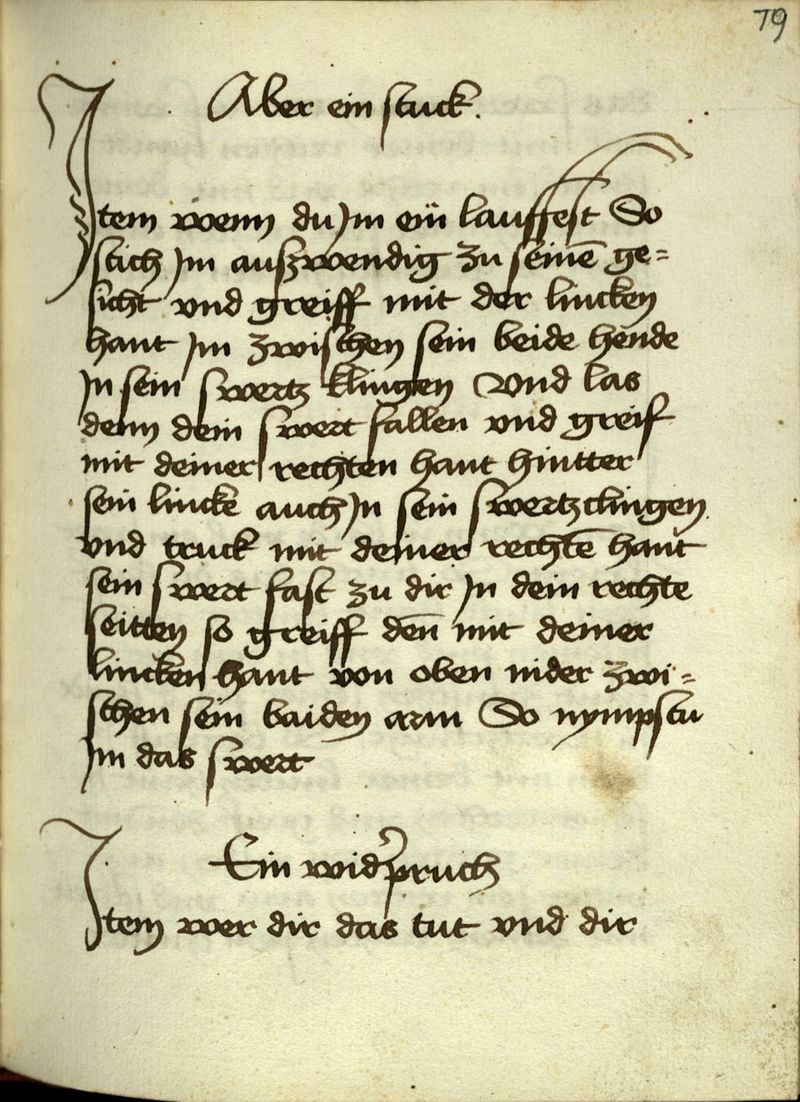 79
Aber ein stuck.
Item wenn du Jm ein lauffest So
stich Jm auszwendig zu seinē ge=
sicht vnd greiff mit der lincken
hant Jm zwischen sein beide hende
Jn sein swertz klingen Vnd las
denn dein swert fallen vnd greif
mit deiner rechten hant hintter
sein lincke auch Jn sein swertzclingen
vnd truck mit deiner rechtē hant
sein swert fast zu dir Jn dein rechte
seitten so greiff den̄ mit deiner
lincken hant von oben nider zwi=
schen sein baiden arm So nympstu
Jm das swert
Ein wid̾pruch
Item wer dir das tut vnd dir